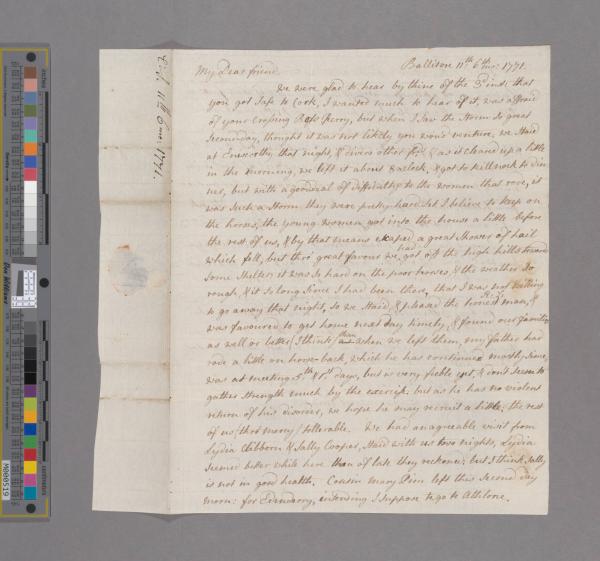 Ballitore 11th 6th mo: 1771.
My Dear friend
We were glad to hear by thine of the 3d inst: that
you got safe to Cork, I wanted much to hear of it, was afraid
of your Crossing Ross ferry, but when I saw the Storm so great
secondday, thought it was not likely you wou'd venture, we staid
at that night, & divers other frds, & as it cleared up a little
in the morning, we left it about 8 oclock, & got to to din
ner, but with a good deal of difficulty to the women that rode, it
was such a Storm they were pretty hard set I believe to keep on
the horses, the young women got into the house a little before
the rest of us, & by that means escaped a great shower of hail
which fell, but thro' great favour we had got off the high hills toward
some shelter it was so hard on the poor horses, & the weather so
rough, & it so long since I had been there, that I was not willing
to go away that night, so we staid & pleased the honest man, &
was favoured to get home next day timely, & found our families
as well or better (I think) than when we left them, my father had
rode a little on horse-back, which he has continued mostly since,
was at meeting 5th & 1st days, but is very feeble yet, & don't seem to
gather strength much by the exercise, but as he has no violent
return of his disorder, we hope he may recruit a little, the rest
of us (thro' mercy) tollerable. We had an agreeable visit from
Lydia & Sally Cooper, staid with us two nights, Lydia
seemed better while here than of late they reckoned, but I think Sally
is not in good health. Cousin Mary left this second day
morn: for Edenderry, intending I suppose to go to Athlone.
11th 6mo: 1771.
M000519